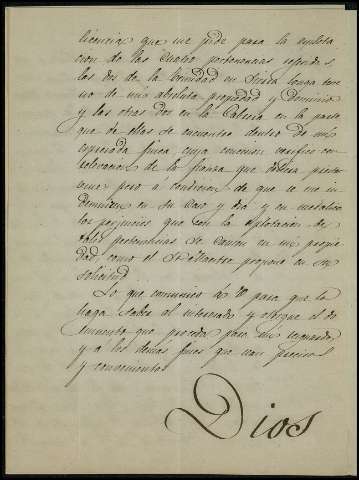 licencia que me pide para la esplota
cion de las cuatro pertenencias referidas,
las dos de la Trinidad en terre
no de mi absoluta propiedad y Dominio
y las otras dos en la en la parte
que de ellas se encuentra dentro de mi
espresada finca, cuya concesion verifico con
relevacion de la fianza que
pero a condicion de que se me in
demnicen en su caso y dia y en metalico
los perjuicios que con la esplotacion de
dichas pertenencias se causen en mi propie
dad, como el propone en su
solicitud.
Lo que comunico á V. para que lo
haga saber al interesado y otorgue el do
cumento que proceda para mi resguardo,
y a los demás fines que sean precisos
y convenientes.
Dios